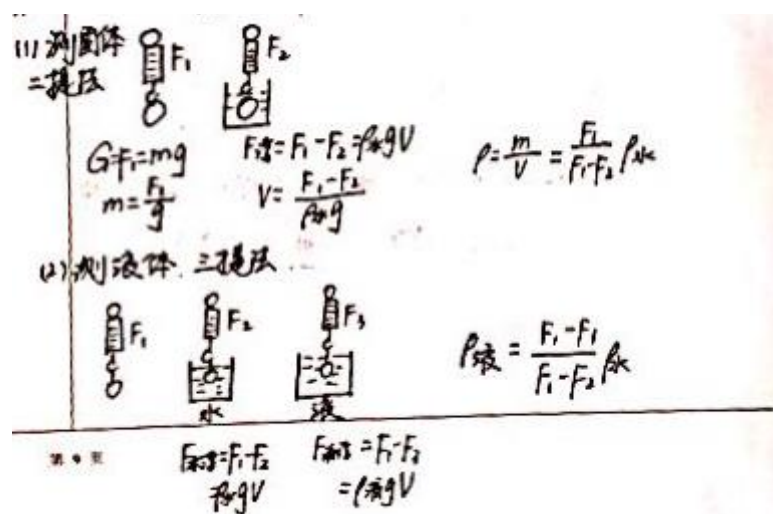 (1) 测固体
二提法
F₁
F₂
G=F₁=mg
F浮=F₁-F₂=ρ水gV
m=F₁/g
V=(F₁-F₂)/(ρ水g)
ρ=m/V=F₁/(F₁-F₂) ρ水
(2) 测液体 三提法
F₁
F₂
F₃
水
液
ρ液=(F₁-F₁)/(F₁-F₂) ρ水
第 9 页
F水浮=F₁-F₂
=ρ水gV
F液浮=F₁-F₃
=ρ液gV